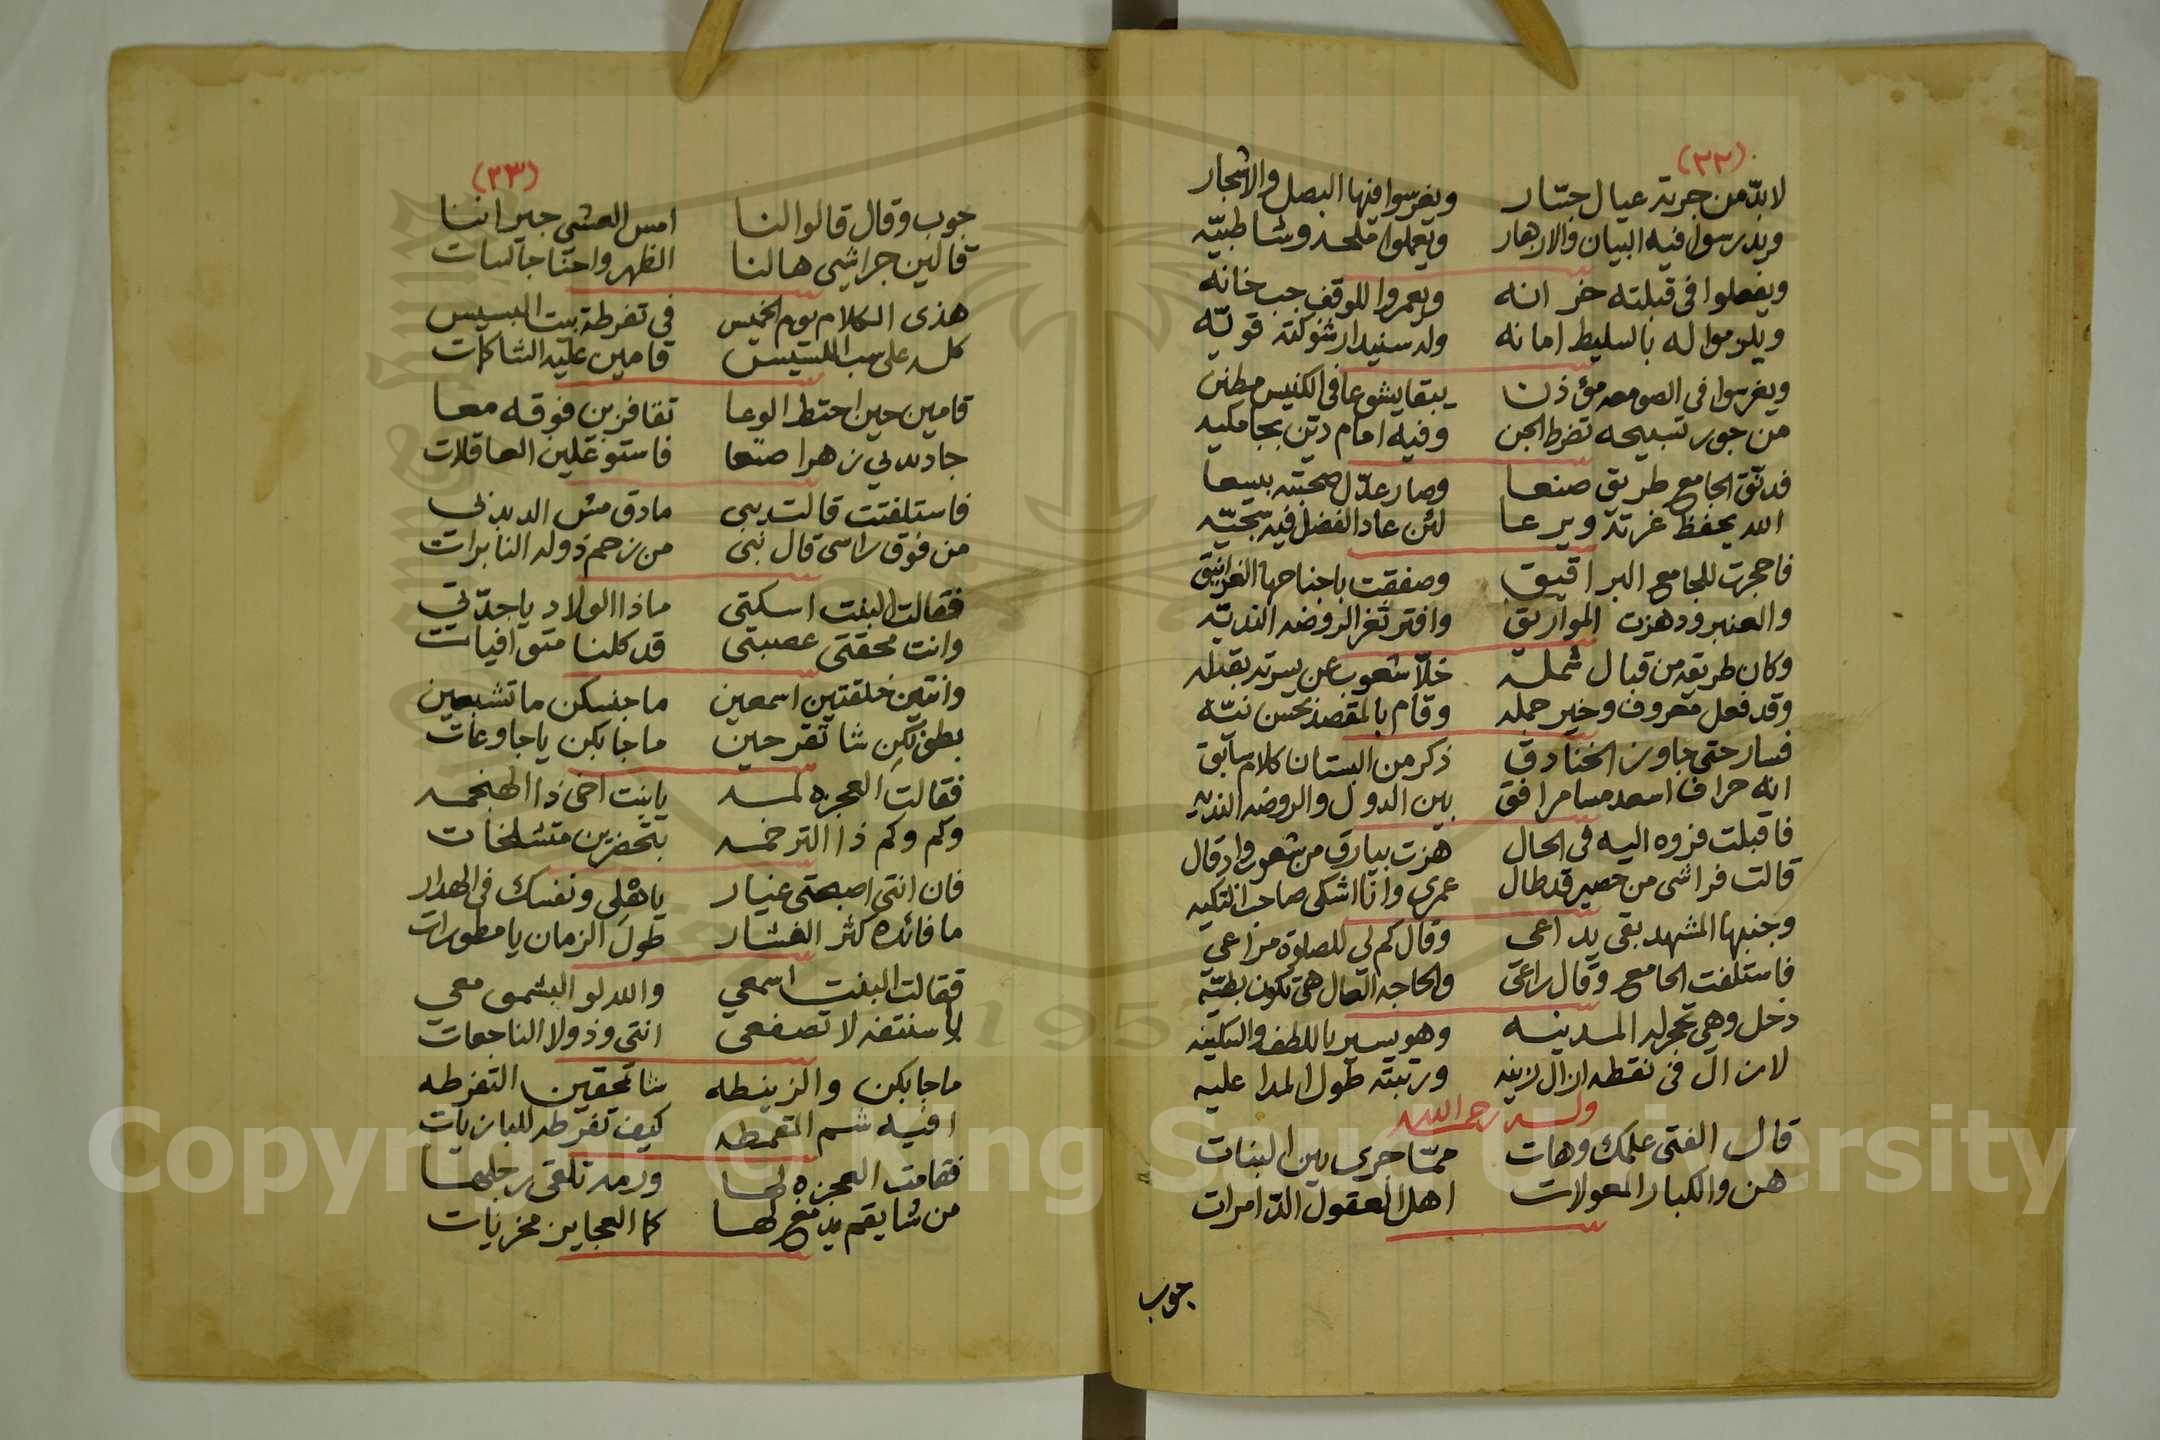 (٢٢)
لابدّ من جربة عيال جبّار ويغرسوا فيها البصل والاشجار
ويدرسوا فيه البيان والازهار ويعملوا ملحه وشاطبيّه
ويفعلوا في قبلته خزانه ويعمروا للوقف جب خانه
ويلزموا له بالسليط امانه
ويغرسوا في الصومعه مؤذن يبقا يشوعا في الكنيس مطنن
من جور تسبيحه تضرط الجن وفيه امام ديّن بجامكيه
فدنّق الجامع طريق صنعا وصار عدّل صحبته بيسعا
الله يحفظ غرته ويرعا لئن عاد الفضل فيه سجيّه
فاحجرت للجامع البراقيق وصفقت باجناحها الغرانيق
والعنبرود هزت المواريق وافتر ثغر الروضه النديّه
وكان طريقه من قبال شمله خلّا شعوب عن يسرته بقبله
وقد فعل معروف وخير جمله وقام بالمقصد بحسن نيّه
فسار حتى جاوز الخنادق ذكر من البستان كلام سابق
انه حراف اسعد مسامرافق بين الدول والروضه النديه
فاقبلت فزوه اليه في الحال هزت بيارق من شعوب وادقال
قالت فراشى من حصير قد طال عمري وانا اشكى صاحب التكيه
وجنبها المشهد بقى يداعى وقال كم لى للصلوة مراعي
فاستلفت الجامع وقال راعى والحاجه العال هي تكون بطيّه
دخل وهي تجر له المدينه وهو يسير باللطف والسكينه
لازال في نقطه ازال زينه ورتبته طول المدا عليه
وله رحمه الله
قال الفتى علمك وهات ممّا جرى بين البنات
هن والكبار المعولات اهل العقول الدّامرات
جوب
(٢٣)
جوب وقال قالوا لنا امس العشي جيراننا
قالين جراشي هالنا الظهر واحنا جالسات
هذى الكلام يوم الخميس في تفرطة بيت البسيس
كله على سب اللسيس قامين عليه الشاكلات
قامين حين احتط الوعا تقافزين فوقه معا
جاد بدلي زهرا صنعا فاستوغلين العاقلات
فاستلفتت قالت بيبي مادق مش الدبدبي
من فوق راسى قال نبى من زحم ذوله النابرات
فقالت البنت اسكتى ماذا الولاد يا جدّتي
وانت محقتى عصبتى قد كلنا متوافيات
وانتين خلقتين اسمعين ما جنسكن ما تشبعين
بطونكن شا تقرحين ما جابكن يا جاوعات
فقالت العجزه لمه يابنت اخى ذا الهنجمه
وكم وكم ذا الترخمه بتحضرين متشلخات
فان انتى اصبحتى عنيار ياهلي ونفسك في الهدار
ما فائده كثر الفشار طول الزمان يا مطورات
فقالت البنت اسمعي والله لو البشمق معي
لا سنتفه لا تصفعى انتي وذولا الناجعات
ما جابكن والزينطه شاتمحقين التفرطه
افيه شم القمطه كيف تفرطه للبازيات
فقامت العجزه لها ورمه تلقى رجلها
من شا يقم يدفع لها كما العجايز مخزيات